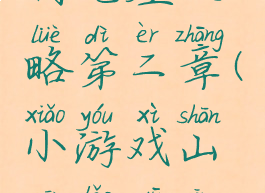 lüè dì èr zhāng
略第二章(
xiǎo yóu xì shān
小游戏山